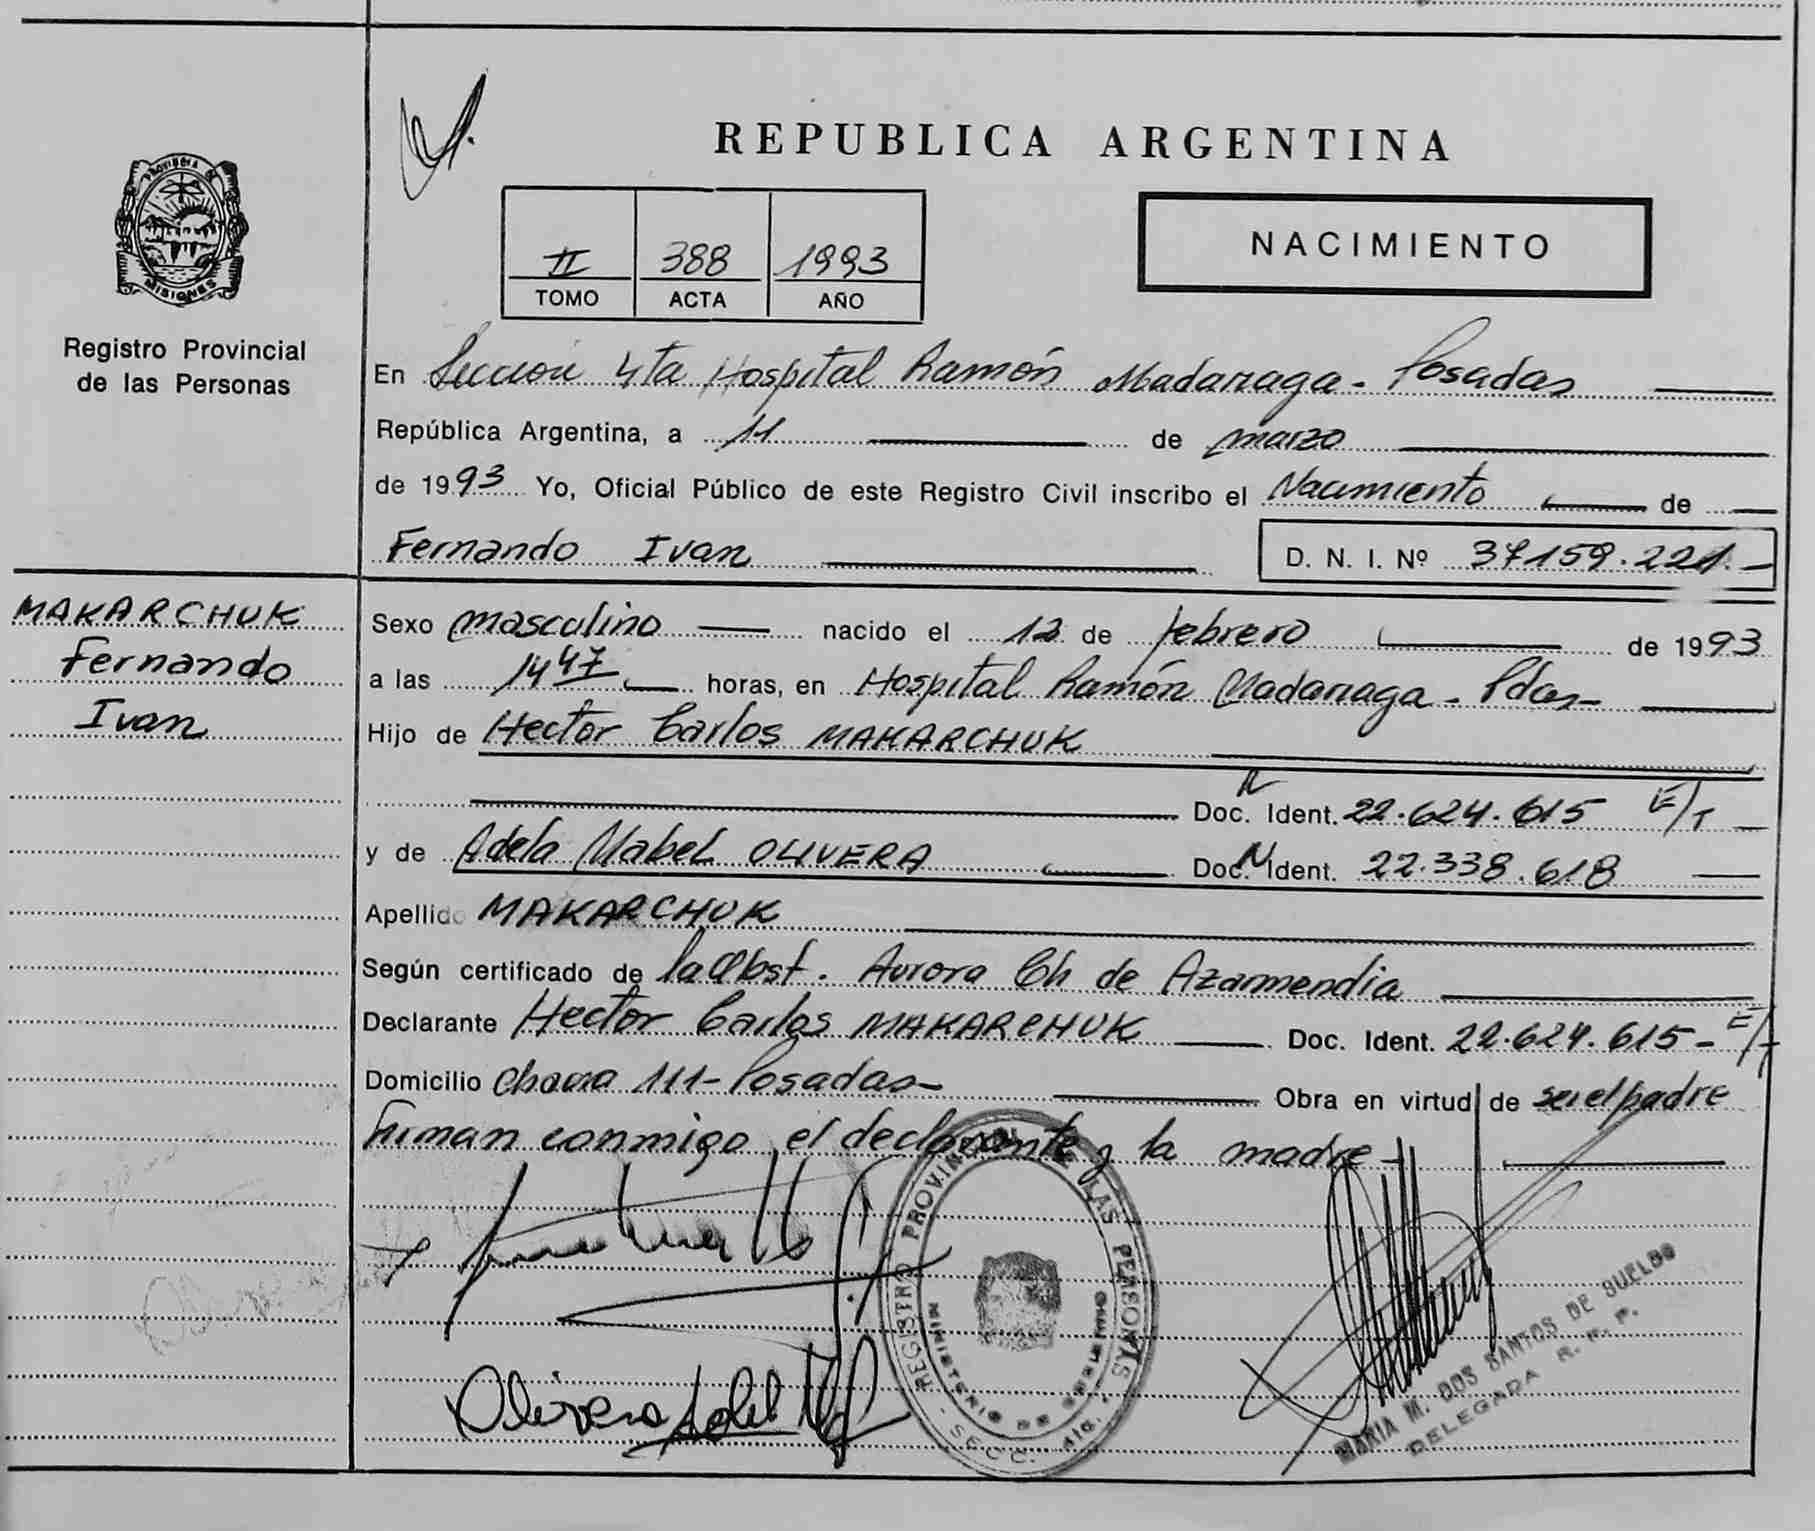 REPUBLICA ARGENTINA
PROVINCIA DE
MISIONES
Registro Provincial
de las Personas
II 388 1993
TOMO ACTA AÑO
NACIMIENTO
En Sección 4ta Hospital Ramón Madariaga - Posadas
República Argentina, a 11 de marzo
de 1993 Yo, Oficial Público de este Registro Civil inscribo el Nacimiento de
Fernando Ivan D. N. I. Nº 37159.221.-
MAKARCHUK
Fernando
Ivan
Sexo masculino nacido el 12 de febrero de 1993
a las 14 47 horas, en Hospital Ramón Madariaga - Pdas-
Hijo de Hector Carlos MAKARCHUK
Doc. Ident. 22.624.615 E/T
y de Adela Mabel OLIVERA Doc. N Ident. 22.338.618
Apellido MAKARCHUK
Según certificado de la Obst. Aurora Ch de Azarmendia
Declarante Hector Carlos MAKARCHUK Doc. Ident. 22.624.615- E/T
Domicilio chacra 111- Posadas- Obra en virtud de ser el padre
Firman conmigo el declarante y la madre-
REGISTRO PROVINCIAL DE LAS PERSONAS
MINISTERIO DE GOBIERNO
- SECC. 4ta. -
Olivera Adela M
MARIA M. DOS SANTOS DE SUELDO
DELEGADA R. P. P.